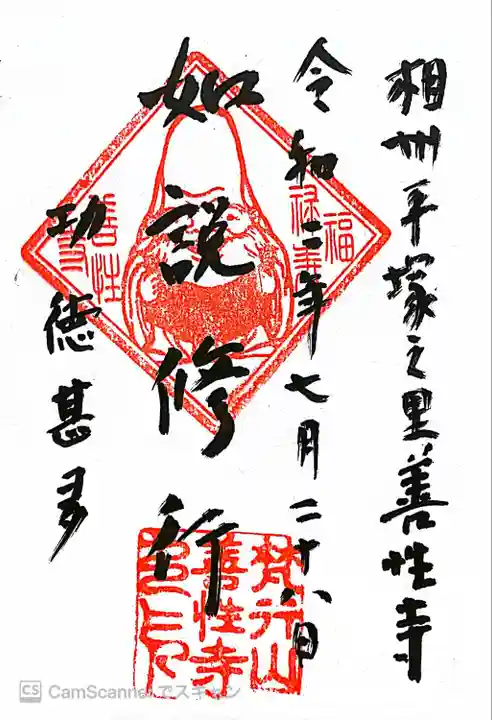 相州平塚之里善性寺
令和二年七月二十八日
如説修行
功徳甚多
福禄寿
善性寺
梵行山
善性寺
CS CamScannerでスキャン